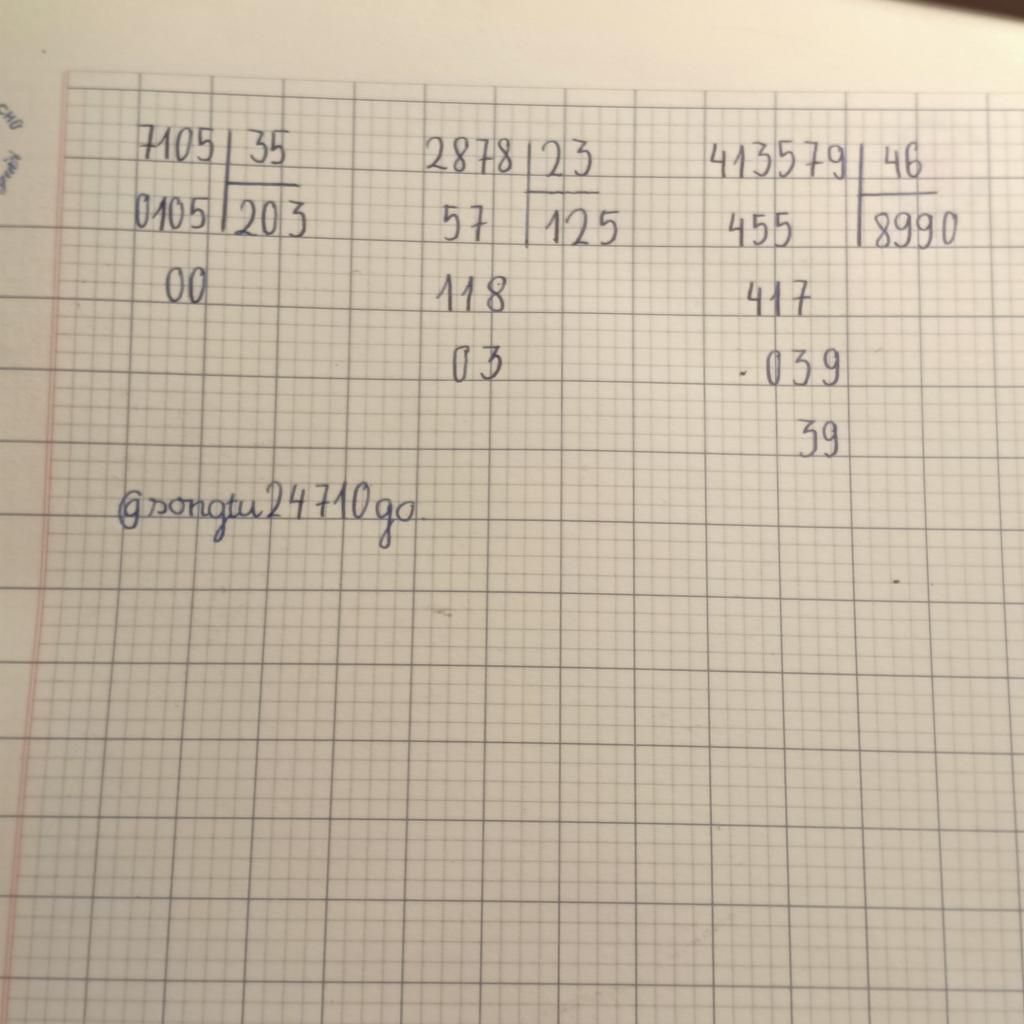 7105 35
0105 203
00
2878 23
57 125
118
03
413579 46
455 8990
417
039
39
@songtu24710go